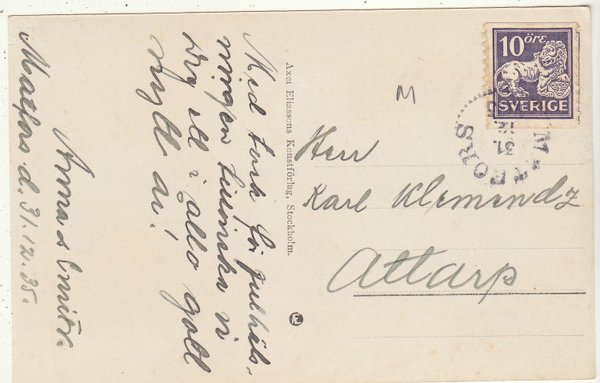 Med tack för julhäls-
ningen tillönska vi
dig ett i allo gott
nytt år!
Matfors d. 31.12.35.
Axel Eliassens Konstförlag, Stockholm.
M
10 ÖRE
SVERIGE
31.
Herr
Karl Klemendz
Attarp